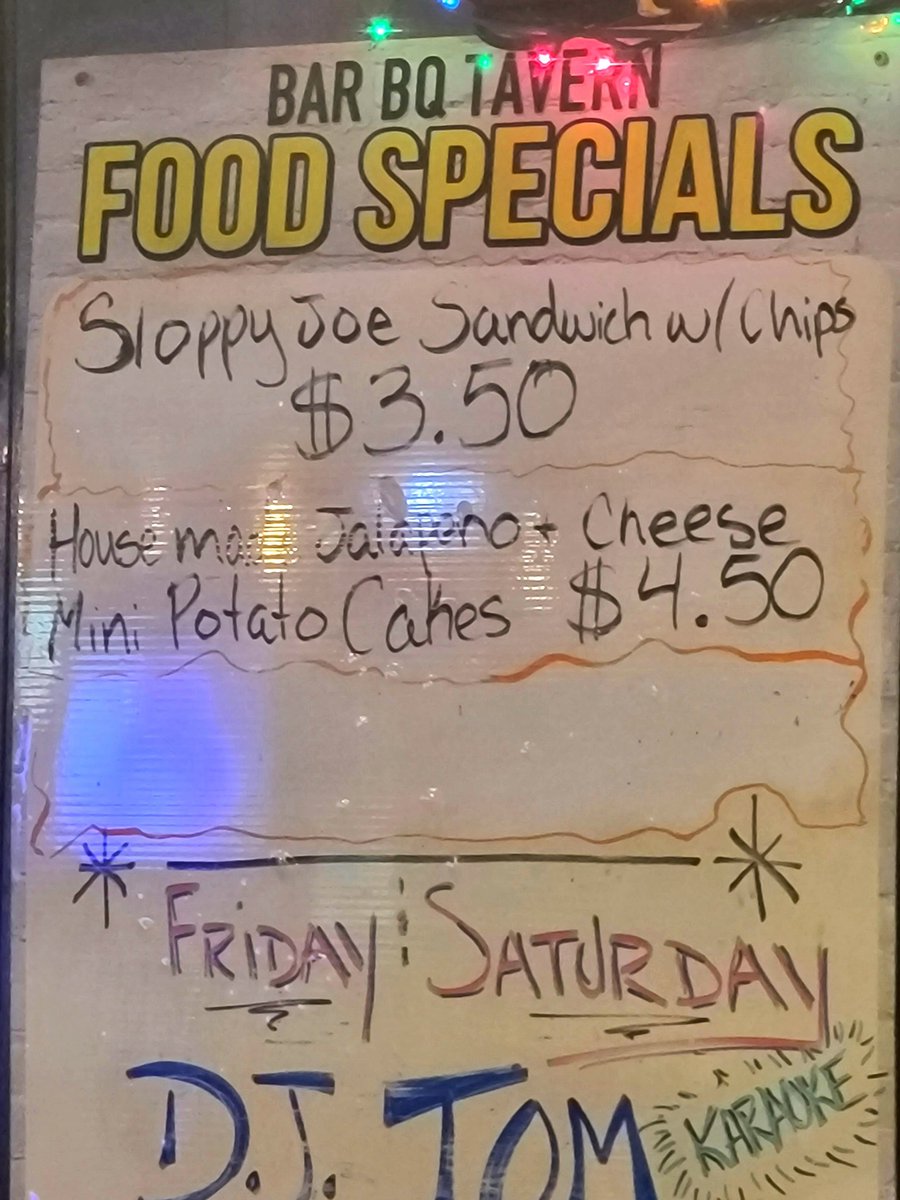 BAR BQ TAVERN
FOOD SPECIALS
Sloppy Joe Sandwich w/ Chips
$3.50
House made Jalapeno + Cheese
Mini Potato Cakes $4.50
FRIDAY SATURDAY
D.J. TOM KARAOKE